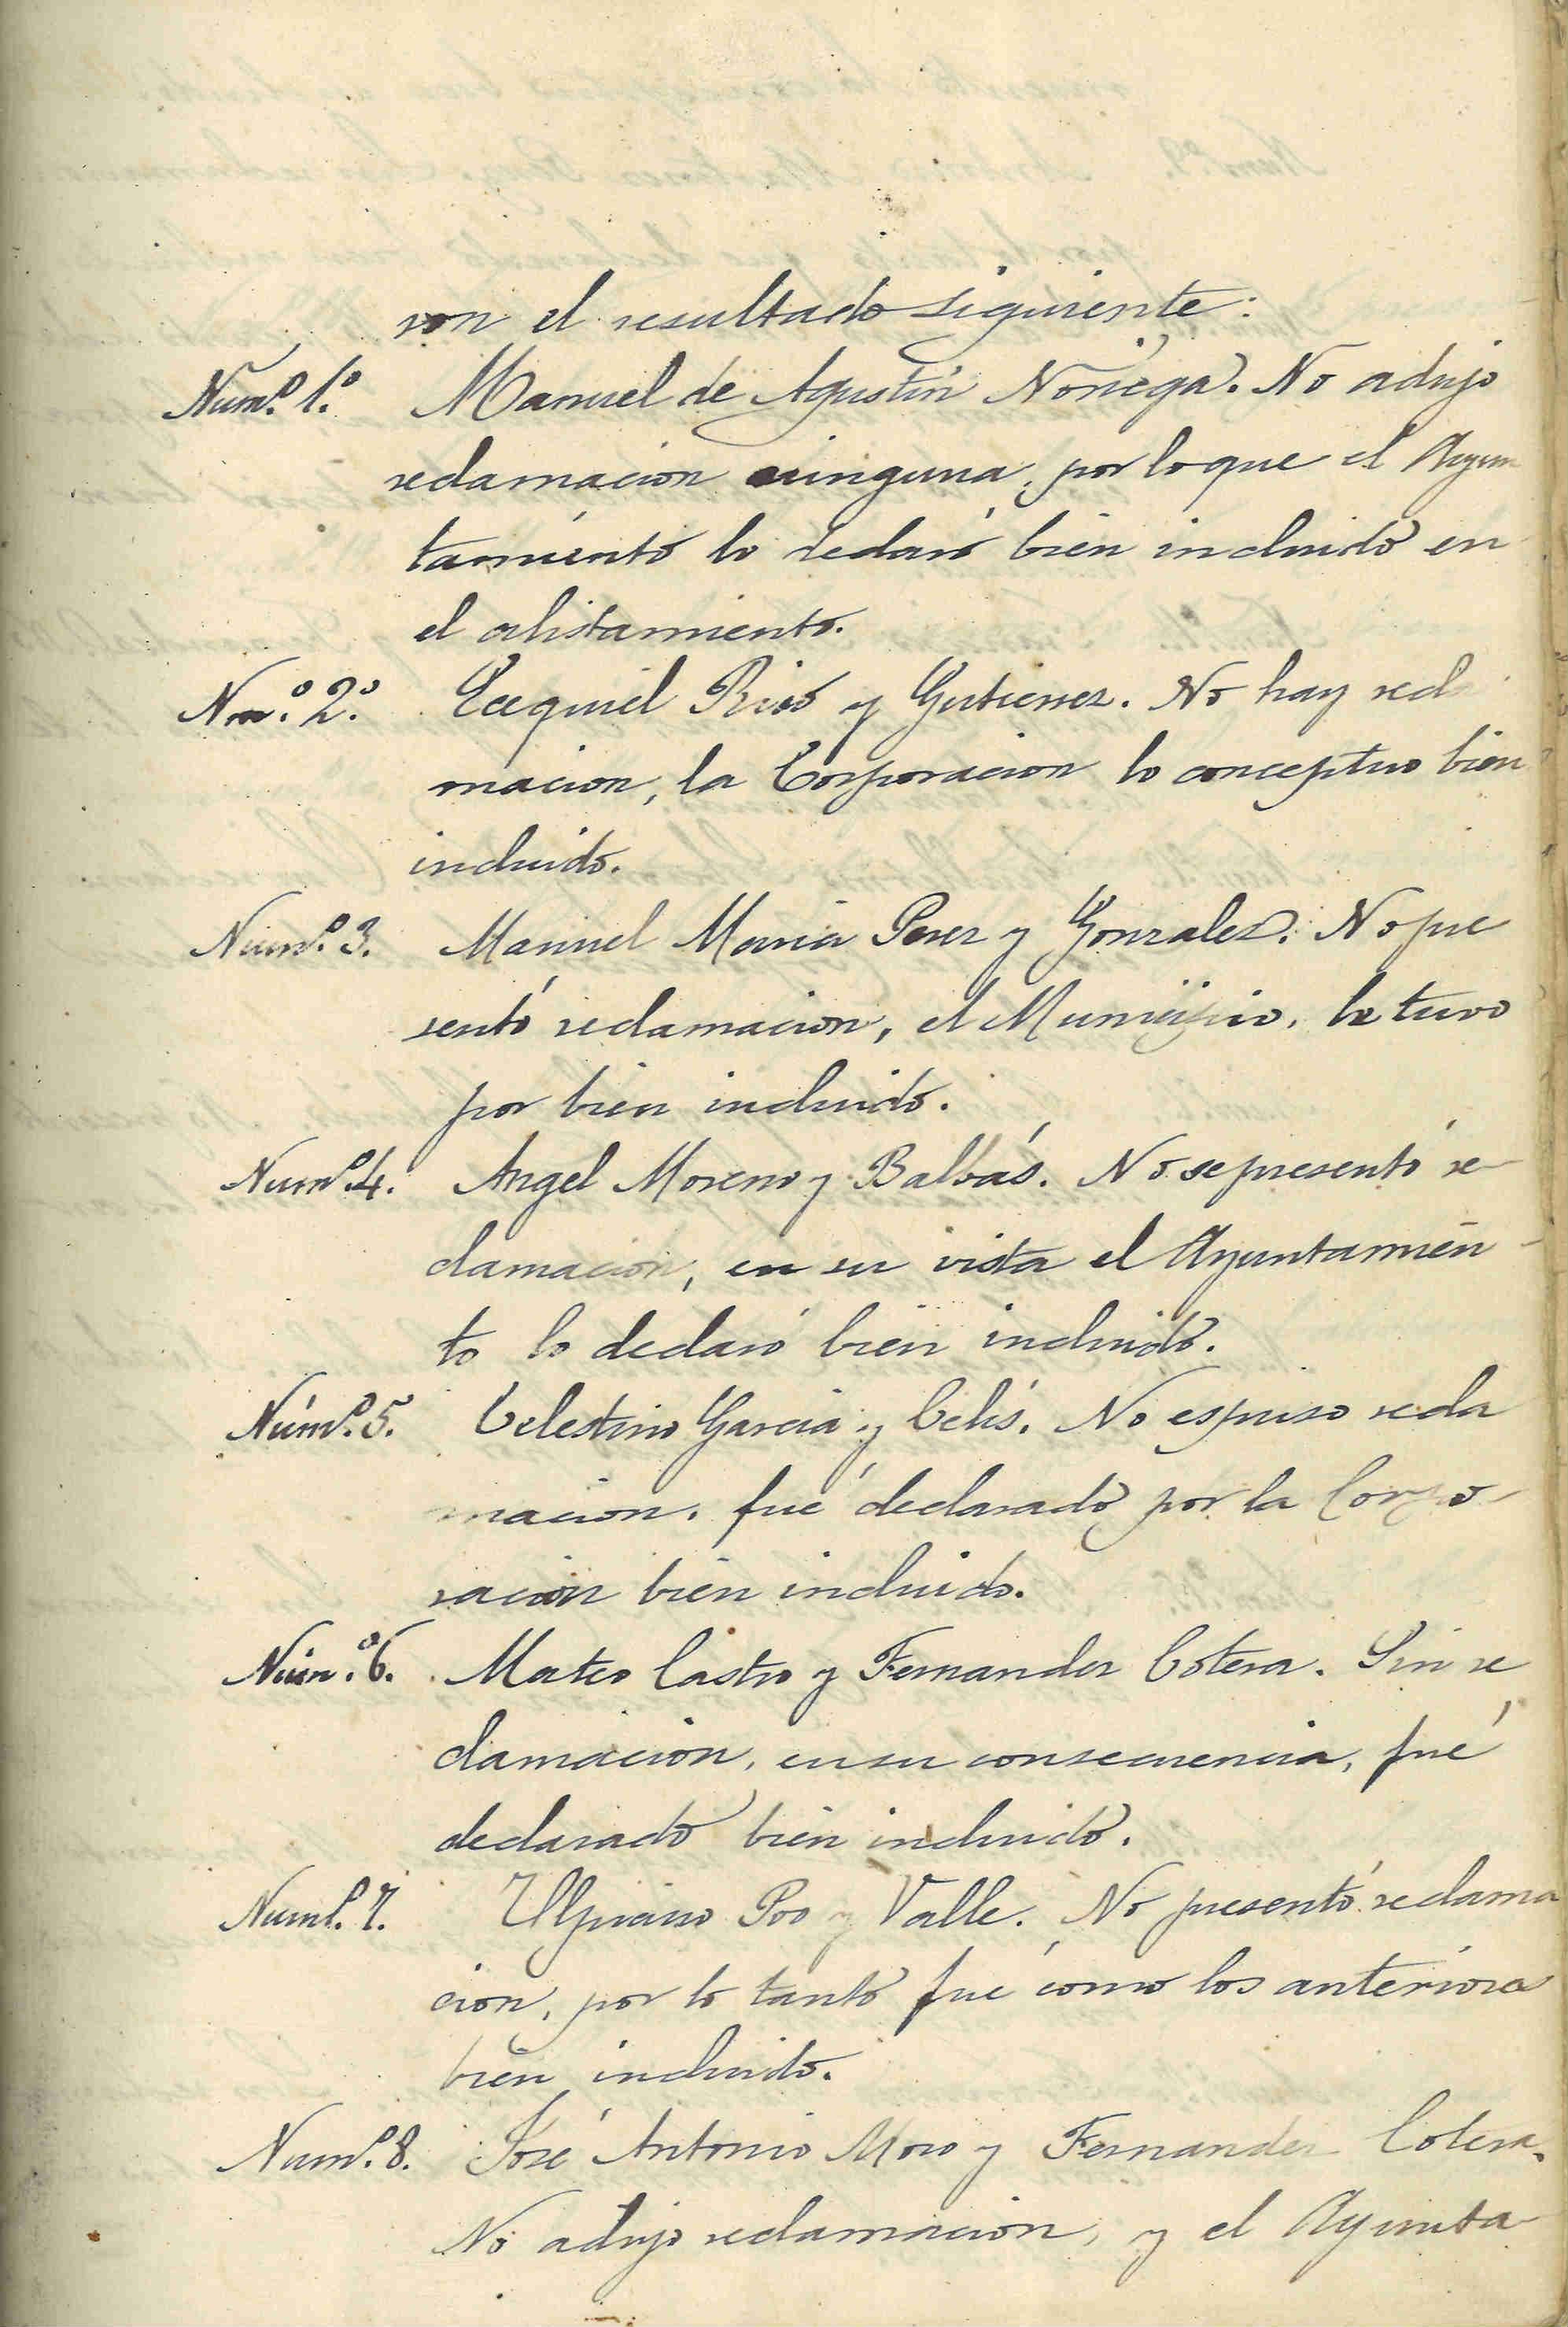 ron el resultado siguiente:
Núm.º 1.º Manuel de Agustín Noriega. No adujo
reclamacion ninguna, por lo que el Ayun
tamiento lo declaró bien incluido en
el alistamiento.
Nm.º 2.º Ecequiel Rios y Gutierrez. No hay recla
macion, la Corporacion lo conceptuo bien
incluido.
Núm.º 3. Manuel Maria Perez y Gonzalez. No pre
sentó reclamacion, el Municipio, le tuvo
por bien incluido.
Núm.º 4. Angel Moreno y Balbás. No se presentó re-
clamacion, en su vista el Ayuntamien-
to lo declaró bien incluido.
Núm.º 5. Celestino Garcia y Celis. No espuso recla
macion, fué declarado por la Corpo-
racion bien incluido.
Núm.º 6. Mateo Castro y Fernandez Cotera. Sin re
clamacion, en su consecuencia, fué
declarado bien incluido.
Núm.º 7. Ulpiano Poo y Valle. No presentó reclama
cion, por lo tanto fue como los anteriores
bien incluido.
Núm.º 8. José Antonio Moro y Fernandez Cotera.
No adujo reclamacion, y el Ayunta-